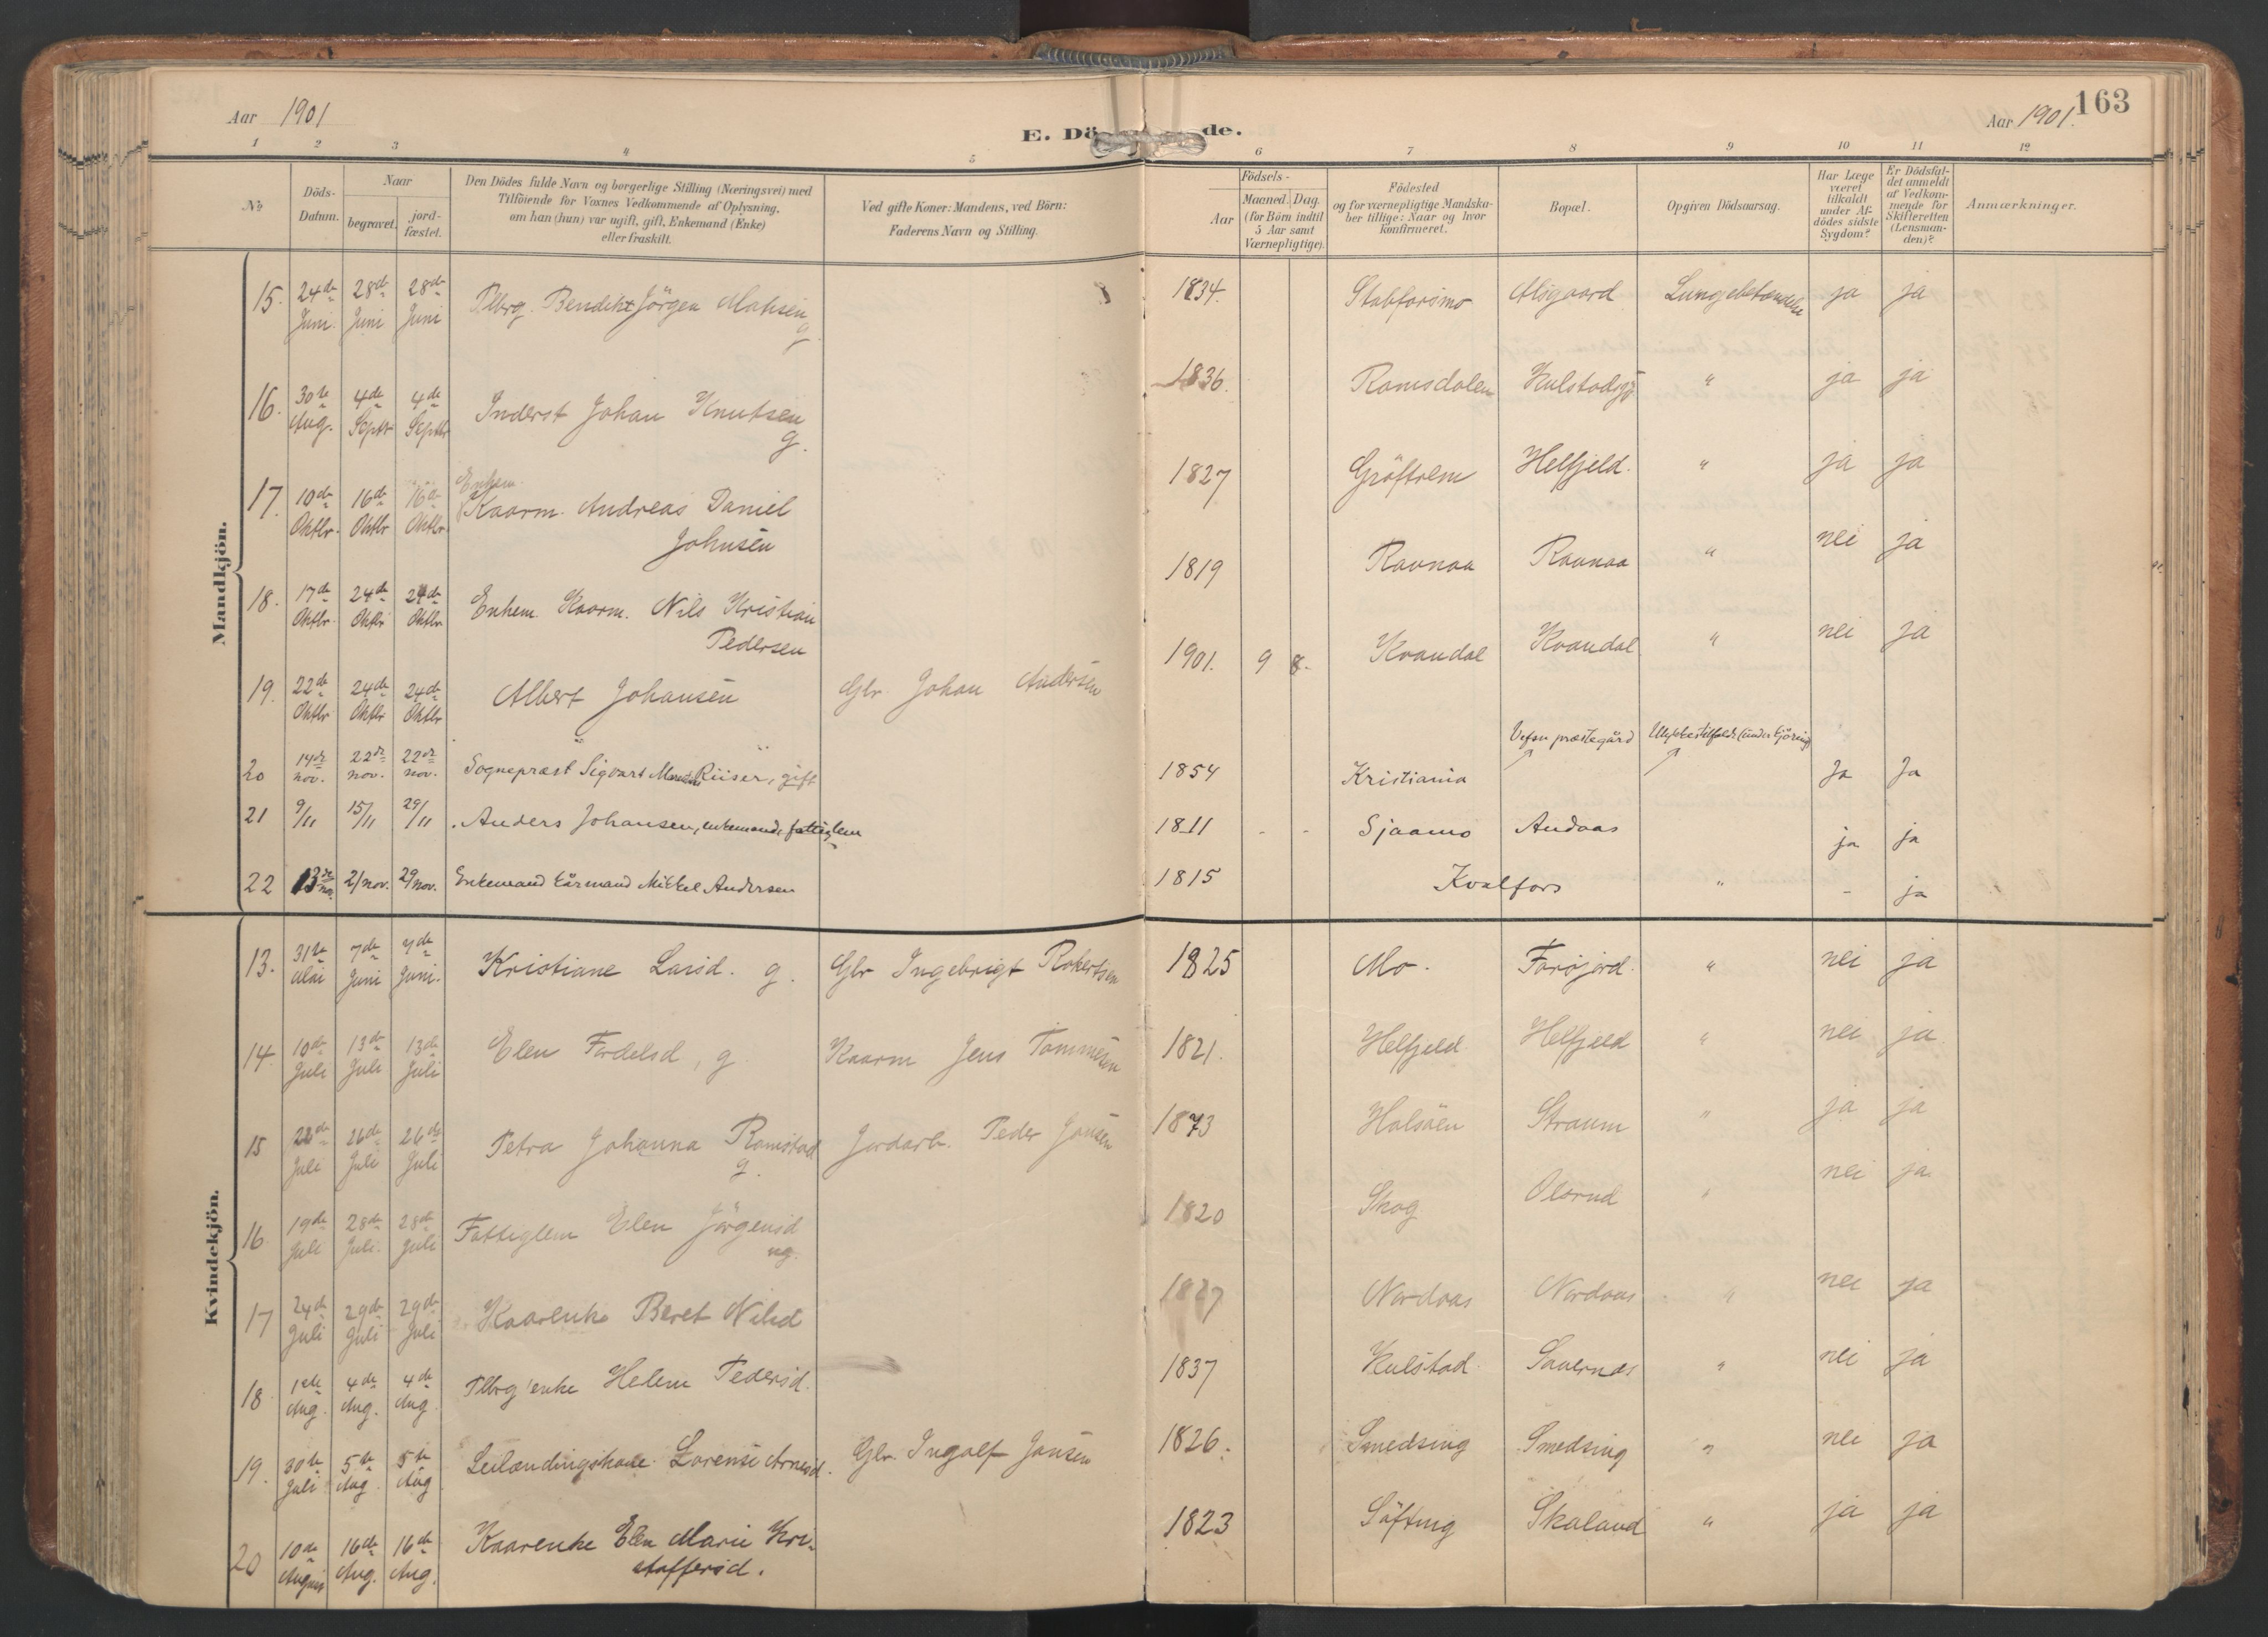 Aar 1901
E. Dö de.
Aar 1901. 163
1 2 3 4 5 6 7 8 9 10 11 12
No
Döds-Datum.
Naar
begravet.
jord-fæstet.
Den Dödes fulde Navn og borgerlige Stilling (Næringsvei) med
Tilföiende for Voxnes Vedkommende af Oplysning,
om han (hun) var ugift, gift, Enkemand (Enke)
eller fraskilt.
Ved gifte Koner: Mandens, ved Börn:
Faderens Navn og Stilling.
Födsels-
Aar
Maaned. Dag.
(for Börn indtil
5 Aar samt
Værnepligtige).
Födested
og for værnepligtige Mandska-
ber tillige: Naar og hvor
konfirmeret.
Bopæl.
Opgiven Dödsaarsag.
Har Læge
været
tilkaldt
under Af-
dödes sidste
Sygdom?
Er Dödsfal-
det anmeldt
af Vedkom-
mende for
Skifteretten
(Lensman-
den)?
Anmærkninger.
Mandkjön.
15. 24de Juni 28de Juni 28de Juni Plbrg. Bendikt Jörgen Matisen g. 1834. Stabforsmo Alsgaard Lungebetændelse ja ja
16. 30te Aug. 4de Septr 4de Septbr Inderst Johan Knutsen g. 1836. Ramsdalen " ja ja
17. 10de Oktbr. 16de Oktbr 16de Oktbr Enkem. Kaarm. Andreas Daniel
Johnsen 1827 Gröftrem Helfjeld. " ja ja
18. 17de Oktbr 24de Oktbr 24de Oktbr Enkem. Kaarm. Nils Kristian
Pedersen 1819 Ravnaa Ravnaa " nei ja
19. 22de Oktbr 24de Oktbr 24de Oktbr Albert Johansen Gbr. Johan Andersen 1901. 9 8. Kvandal Kvandal " nei ja
20 14de nov. 22de nov. 22de nov. Sogneprest Sigvart Riiser, gift 1854 Kristiania Vefsn præstegård Ulykkestilfælde (under kjöring) Ja Ja
21 9/11 15/11 29/11 Anders Johansen, enkemand, fattiglem 1811 - - Sjaamo Andaas ja ja
22 13de nov. 21 nov. 29 nov. Enkemand kårmand Mikkel Andersen 1815 Kvalfors " - ja
Kvindekjön.
13. 31te Mai 7de Juni 7de Juni. Kristiane Larsd. g. Gbr Ingebrigt Robertsen 1825 Mo. " nei ja
14. 10de Juli 13de Juli 13de Juli Elen Fordelsd, g Kaarm Jens Tommesen 1821. Helfjeld Helfjeld " nei ja
15 22de Juli 26de Juli 26de Juli Petra Johanna Ramstad g. Jordarb. Peder Jansen 1873 Halsöen Straum " ja ja
16. 19de Juli 28de Juli. 28de Juli Fattiglem Elen Jörgensd ug. 1820 Skog Olsrud " nei ja.
17 24de Juli 29de Juli 29de Juli Kaarenke Beret Nilsd 1827 Nordaas Nordaas " nei ja
18. 1ste Aug. 4de Aug. 4de Aug. Plbrg'enke Helene Pedersd. 1837 Kulstad. " nei ja
19. 30te Juli 5te Aug. 5te Aug Leilændingskone Lorense Arnesd. Gbr. Ingolf Jansen 1826. Smedseng Smedseng " nei ja
20 10de August 16de Aug. 16de Aug. Kaarenke Elen Marie Kri-
stoffersd. 1823 Söfting Skaland " ja ja